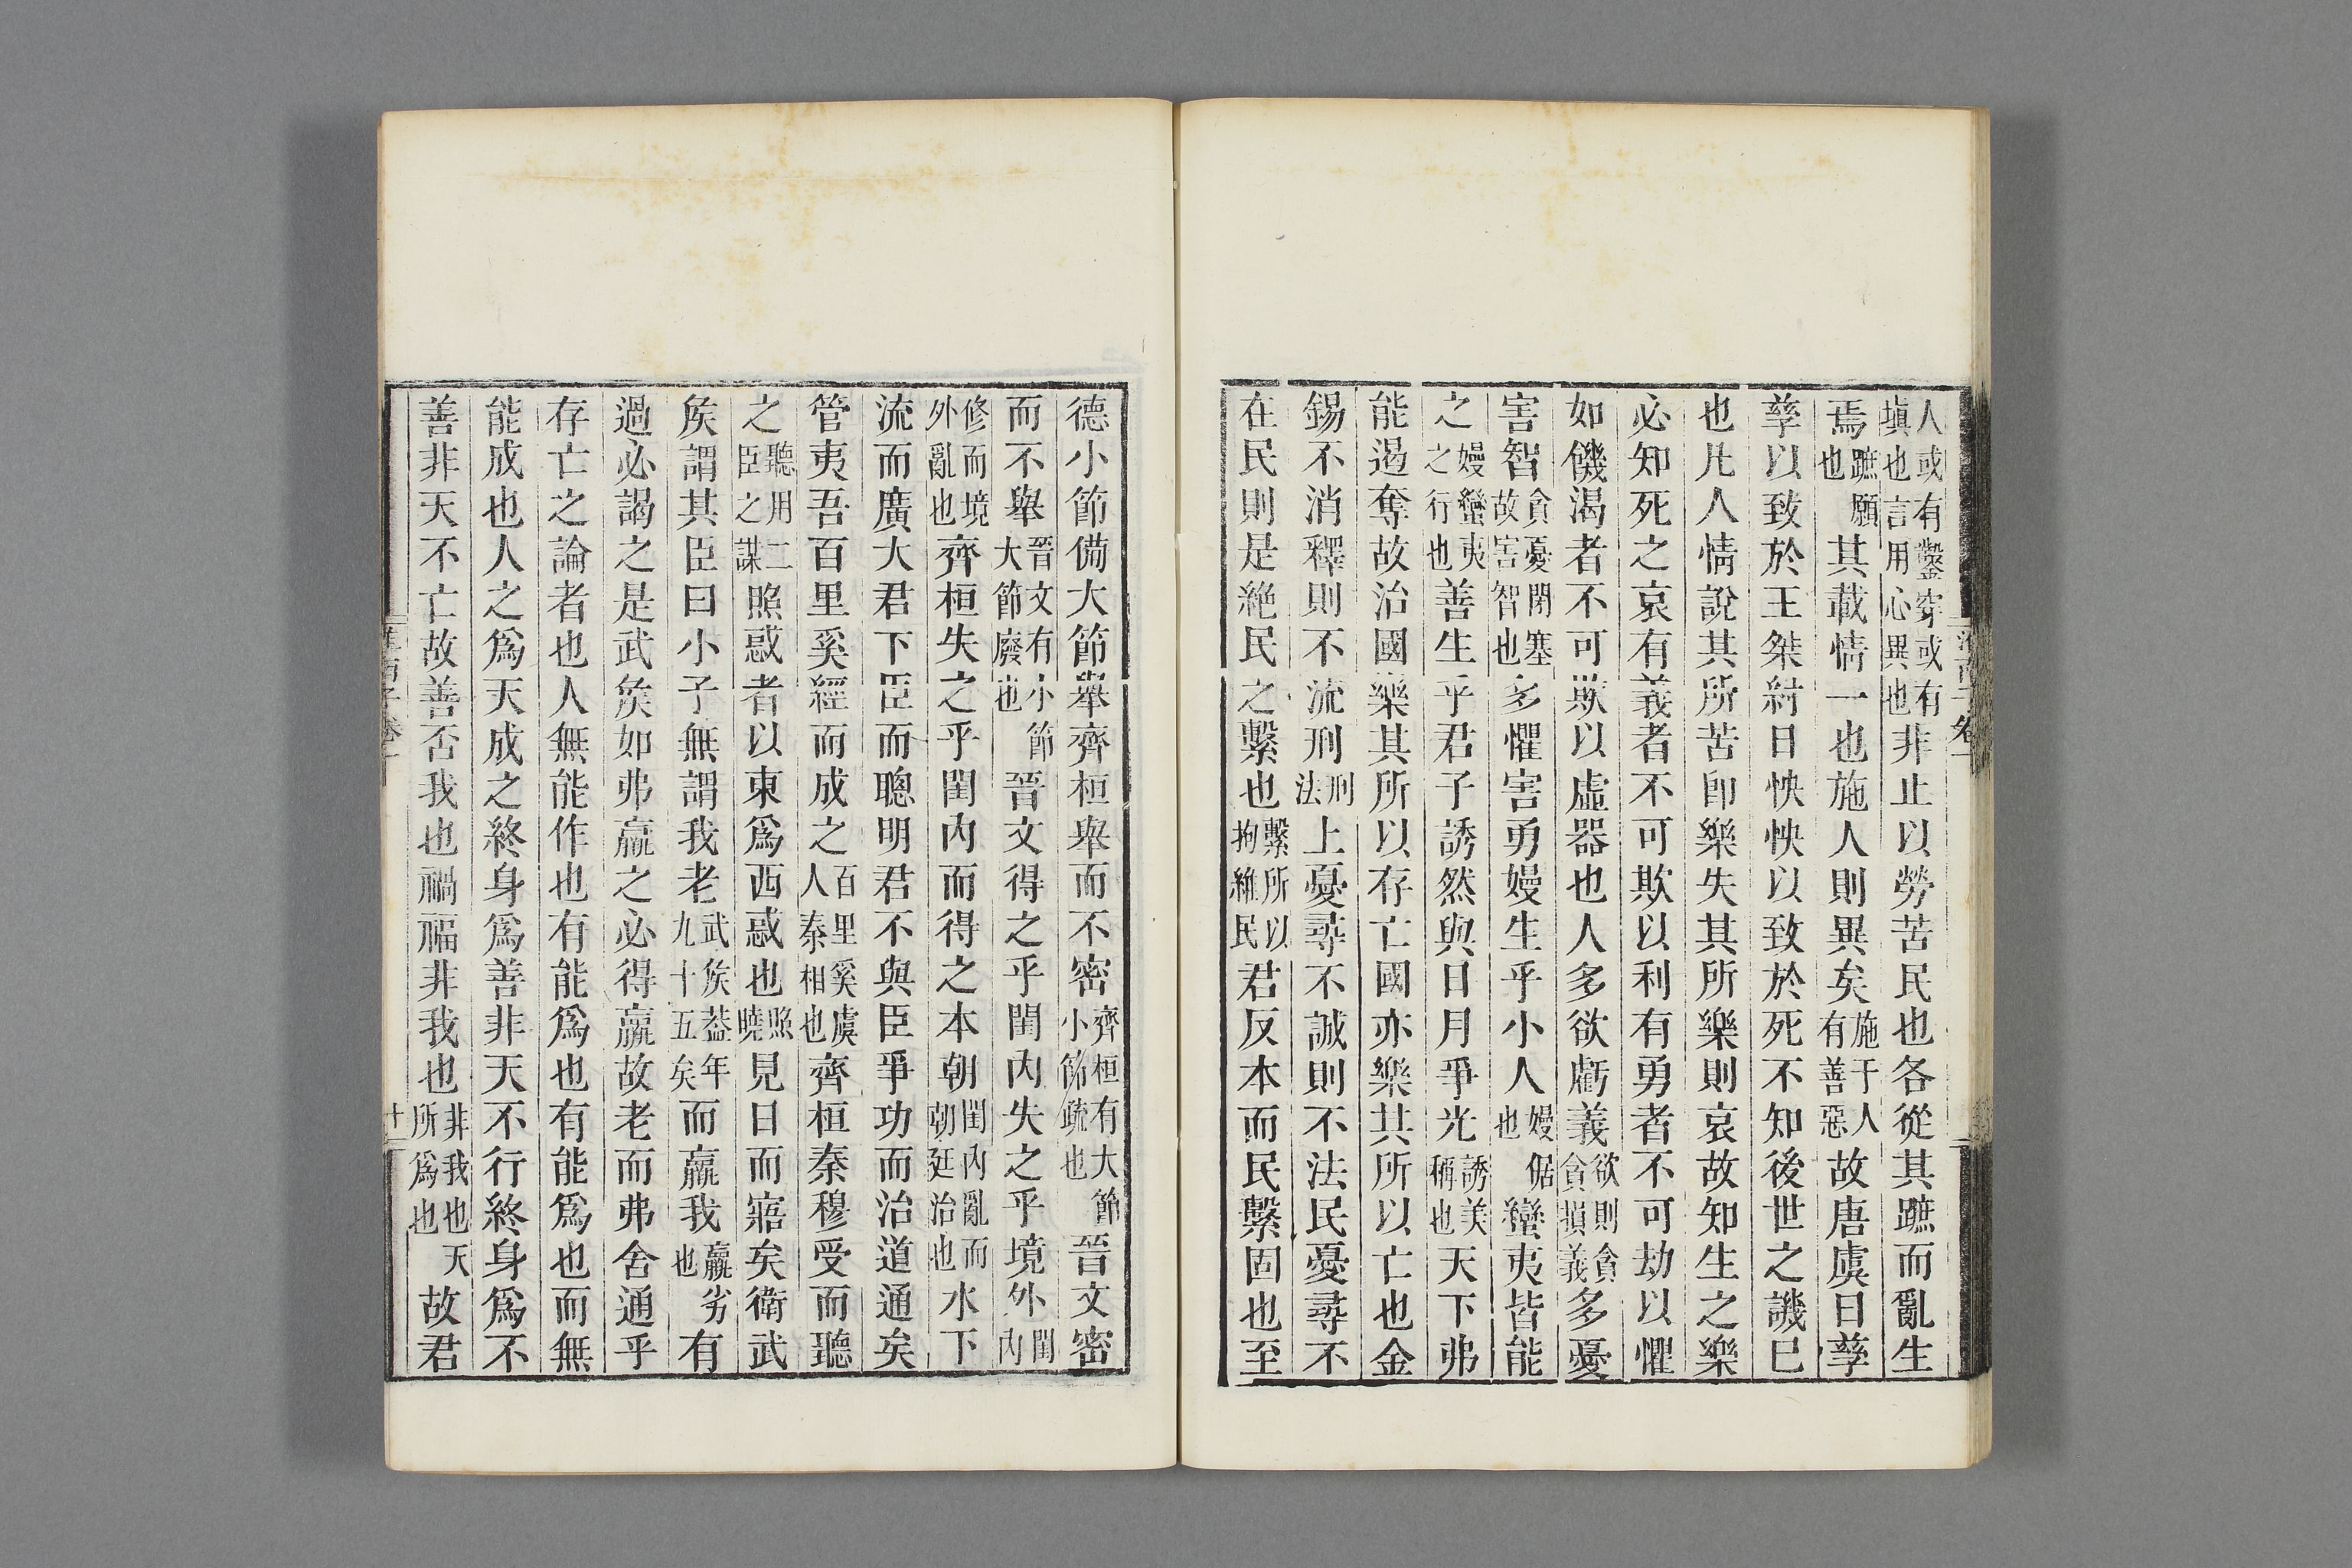 人或有鑿穿或有塡也言用心異也非止以勞苦民也各從其蹠而亂生
焉蹠願也其載情一也施人則異矣施于人有善惡故唐虞日孳
孳以致於王桀紂日怏怏以致於死不知後世之譏巳
也凡人情說其所苦卽樂失其所樂則哀故知生之樂
必知死之哀有義者不可欺以利有勇者不可劫以懼
如饑渴者不可欺以虛器也人多欲虧義欲則貪貪損義多憂
害智貪憂閉塞故害智也多懼害勇嫚生乎小人嫚倨也蠻夷皆能
之嫚蠻夷之行也善生乎君子誘然與日月爭光誘美稱也天下弗
能遏奪故治國樂其所以存亡國亦樂其所以亡也金
錫不消釋則不流刑刑法上憂尋不誠則不法民憂尋不
在民則是絶民之繫也繫所以拘維民君反本而民繫固也至
德小節備大節舉齊桓舉而不密齊桓有大節小節疏也晉文密
而不舉晉文有小節大節廢也晉文得之乎閨內失之乎境外閨內
修而境外亂也齊桓失之乎閨內而得之本朝閨內亂而朝廷治也水下
流而廣大君下臣而聰明君不與臣爭功而治道通矣
管夷吾百里奚經而成之百里奚虞人秦相也齊桓秦穆受而聽
之聽用二臣之謀照惑者以東爲西惑也照曉見日而寤矣衛武
矦謂其臣曰小子無謂我老武矦葢年九十五矣而羸我羸劣也有
過必謁之是武矦如弗羸之必得羸故老而弗舍通乎
存亡之論者也人無能作也有能爲也有能爲也而無
能成也人之爲天成之終身爲善非天不行終身爲不
善非天不亡故善否我也禍福非我也非我也天所爲也故君
淮南子卷十
十一